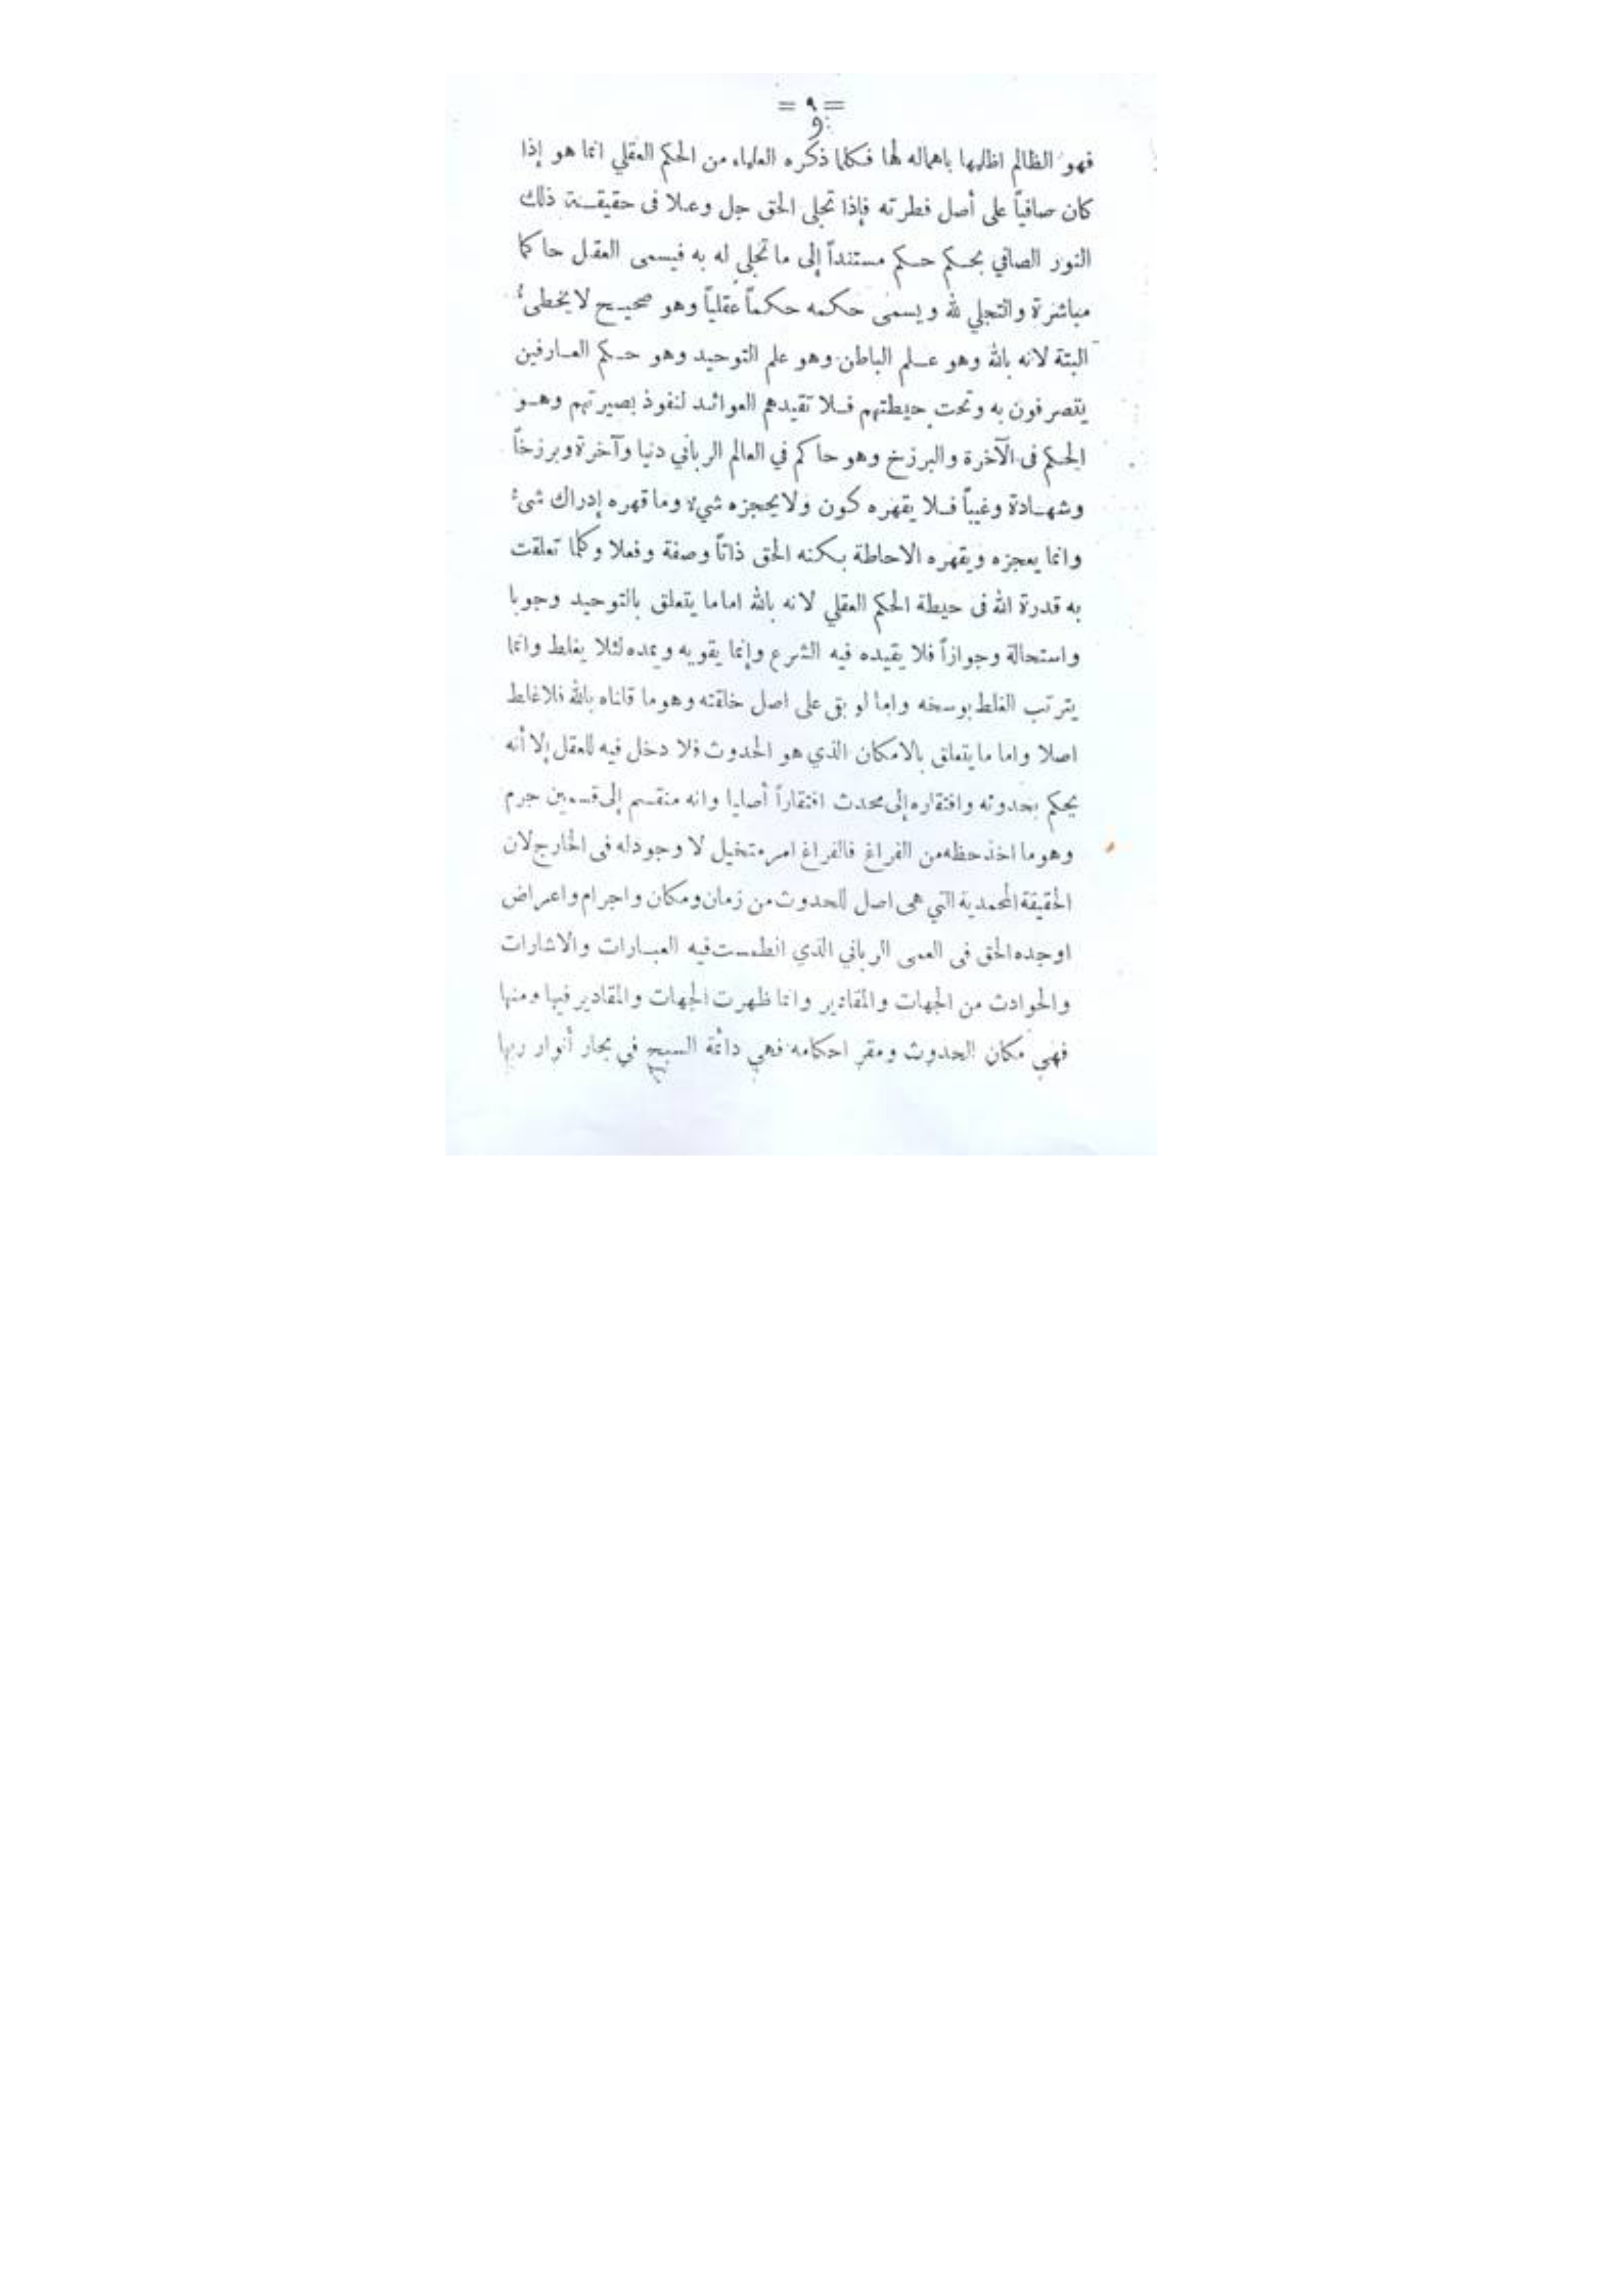 = ٩ =
فهو الظالم اظلمها باهماله لها فكلما ذكره العلماء من الحكم العقلي انما هو إذا
كان صافياً على أصل فطرته فإذا تجلى الحق جل وعلا فى حقيقة ذلك
النور الصافي بحكم حكم مستنداً إلى ما تجلى له به فيسمى العقل حاكما
مباشرة والتجلي لله ويسمى حكمه حكماً عقلياً وهو صحيح لا يخطىء
البتة لانه بالله وهو علم الباطن وهو علم التوحيد وهو حكم العارفين
يتصرفون به وتحت حيطتهم فلا تقيدهم العوائد لنفوذ بصيرتهم وهو
الحكم فى الآخرة والبرزخ وهو حاكم في العالم الرباني دنيا وآخرة وبرزخاً
وشهادة وغيباً فلا يقهره كون ولا يحجزه شيء وما قهره إدراك شىء
وانما يعجزه ويقهره الاحاطة بكنه الحق ذاتاً وصفة وفعلا وكلما تعلقت
به قدرة الله فى حيطة الحكم العقلي لانه بالله اما ما يتعلق بالتوحيد وجوبا
واستحالة وجوازاً فلا يقيده فيه الشرع وإنما يقويه ويمده لئلا يغلط وانما
يترتب الغلط بوسخه واما لو بقى على اصل خلقته وهو ما قلناه بالله فلا غلط
اصلا واما ما يتعلق بالامكان الذي هو الحدوث فلا دخل فيه للعقل إلا أنه
يحكم بحدوثه وافتقاره إلى محدث افتقاراً أصليا وانه منقسم إلى قسمين جرم
وهو ما اخذ حظه من الفراغ فالفراغ امر متخيل لا وجود له فى الخارج لان
الحقيقة المحمدية التي هى اصل للحدوث من زمان ومكان واجرام واعراض
اوجده الحق فى العمى الرباني الذي انطمست فيه العبارات والاشارات
والحوادث من الجهات والمقادير وانما ظهرت الجهات والمقادير فيها ومنها
فهي مكان الحدوث ومقر احكامه فهي دائمة السبح في بحار أنوار ربها